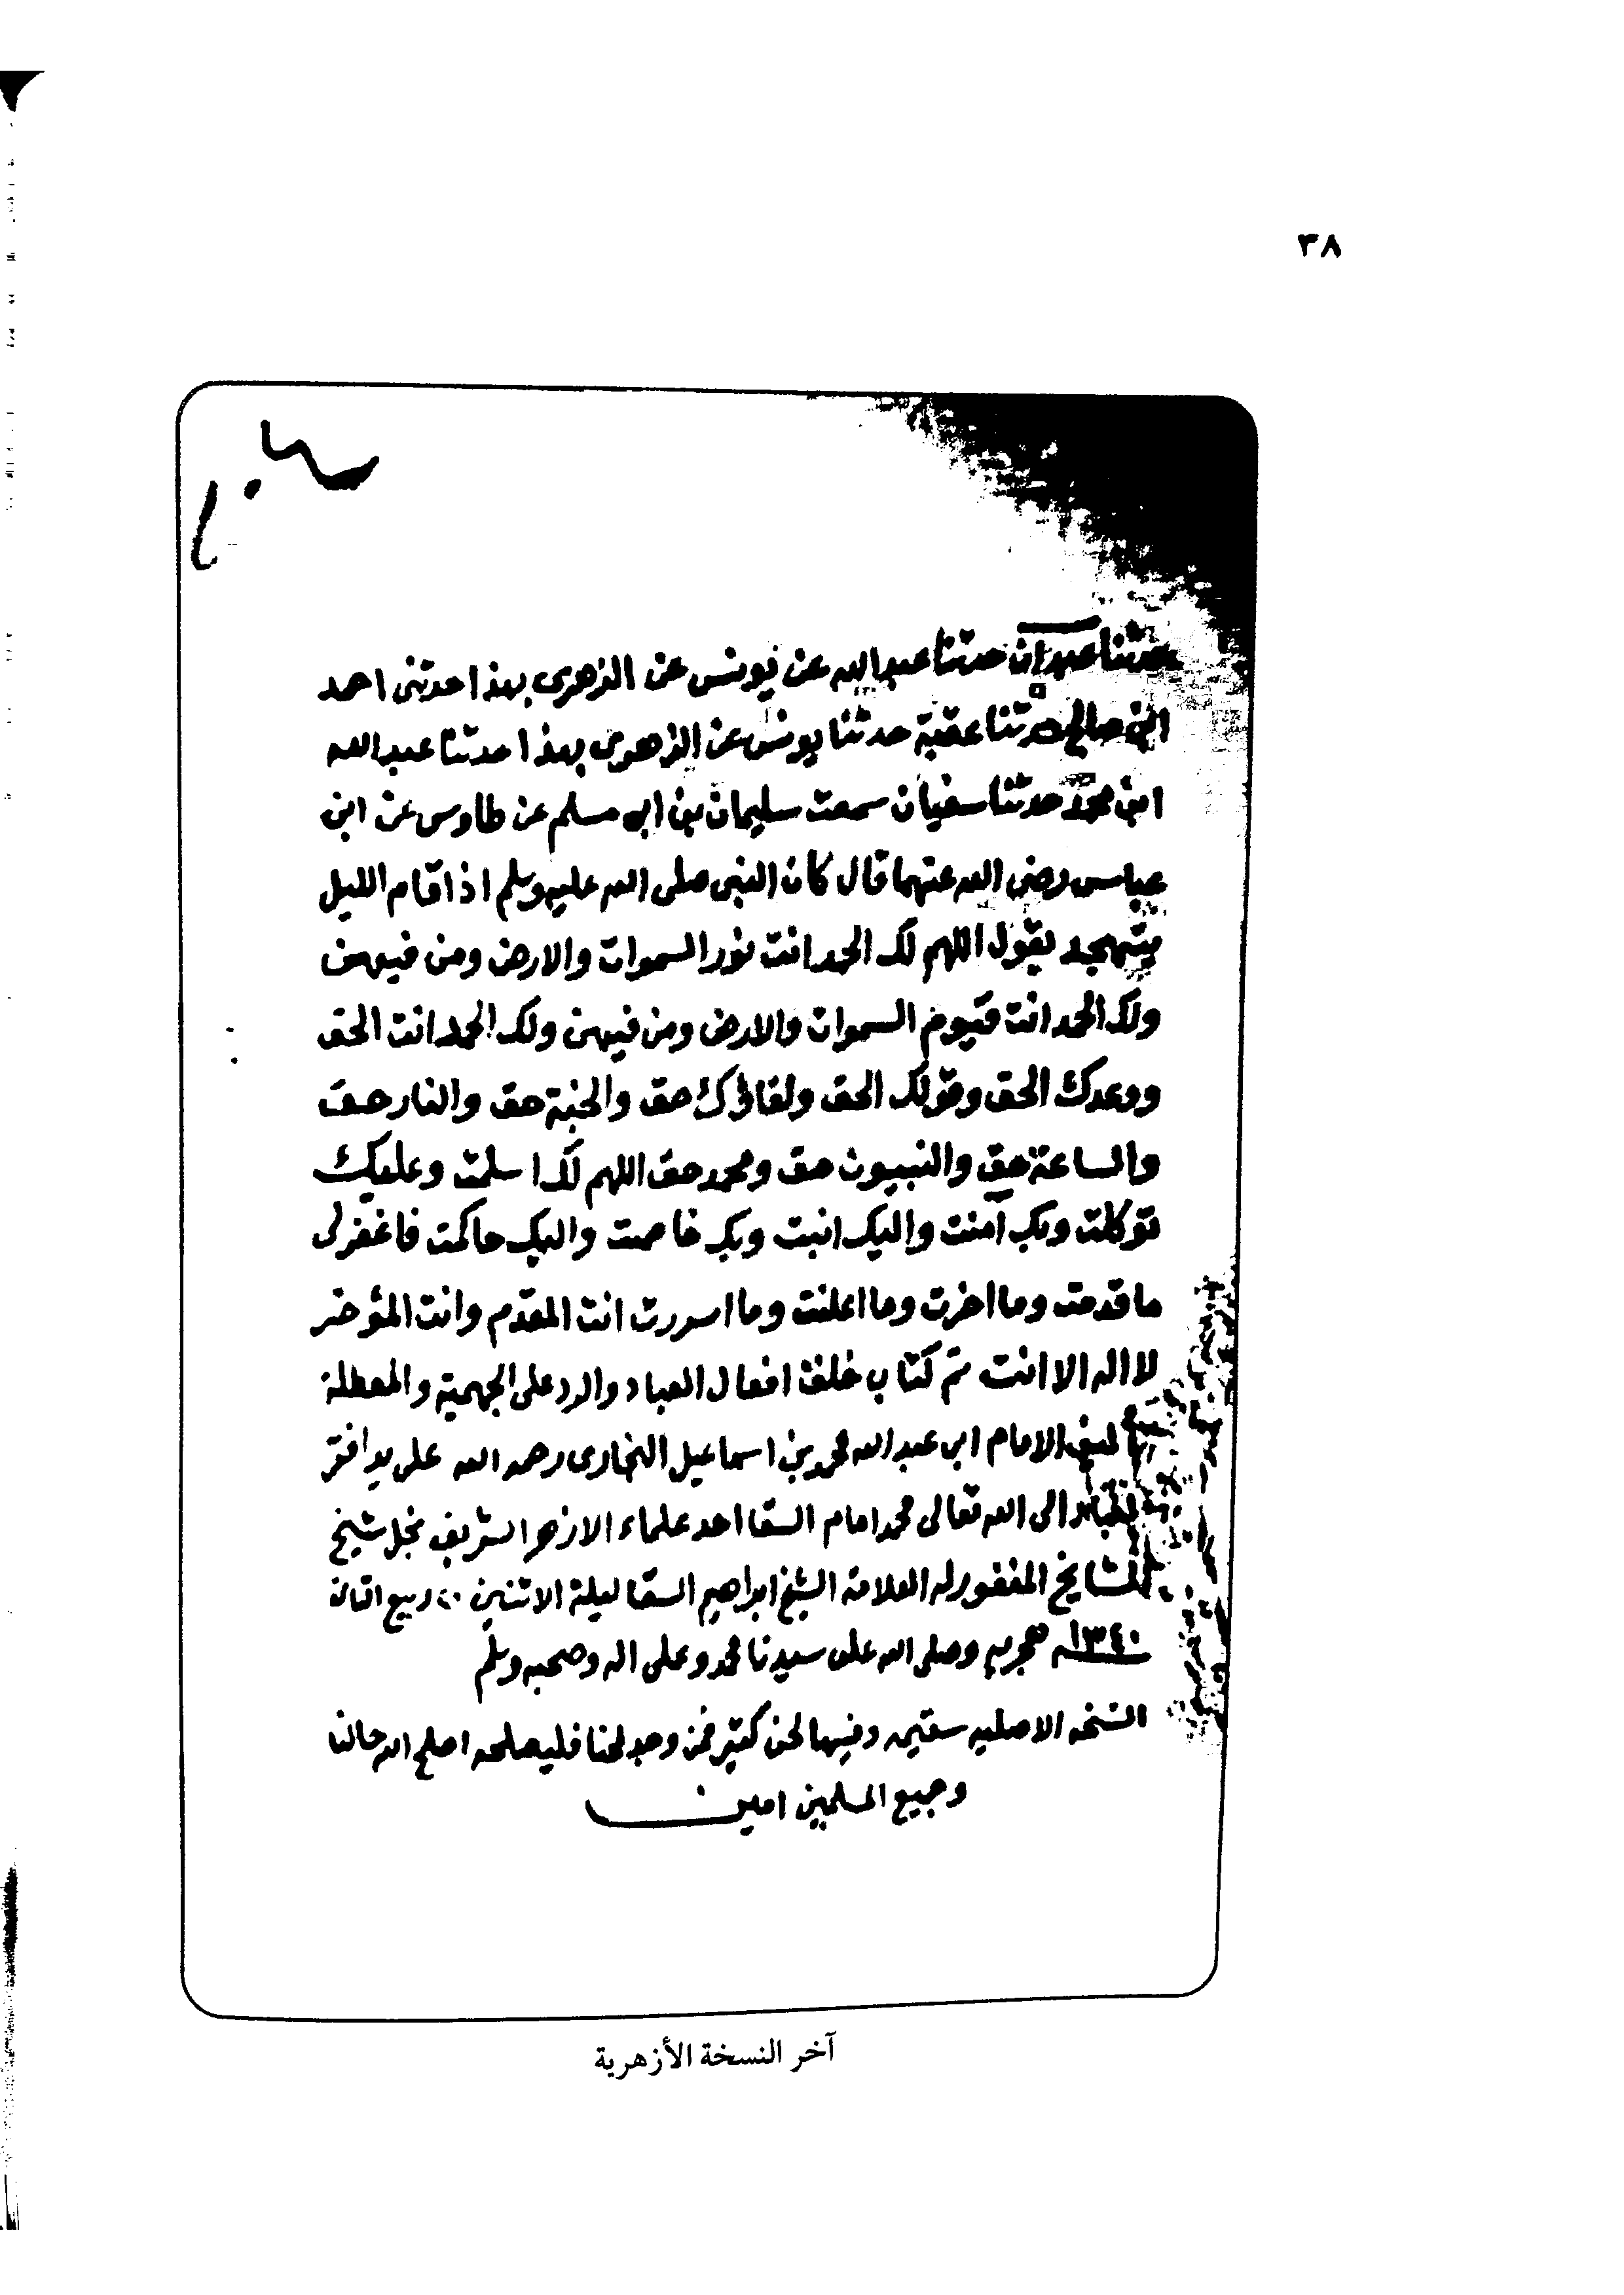 ٣٨
حدثنا عبدان حدثنا عبد الله عن يونس عن الزهرى بهذا حدثنى احمد
ابن صالح حدثنا عقبة حدثنا يونس عن الزهرى بهذا حدثنا عبد الله
ابن محمد حدثنا سفيان سمعت سليمان بن ابى مسلم عن طاوس عن ابن
عباس رضى الله عنهما قال كان النبى صلى الله عليه وسلم اذا قام الليل
يتهجد يقول اللهم لك الحمد انت نور السموات والارض ومن فيهن
ولك الحمد انت قيوم السموات والارض ومن فيهن ولك الحمد انت الحق
ووعدك الحق وقولك الحق ولقاؤك حق والجنة حق والنار حق
والساعة حق والنبيون حق ومحمد حق اللهم لك اسلمت وعليك
توكلت وبك آمنت واليك انبت وبك خاصمت واليك حاكمت فاغفرلى
ما قدمت وما اخرت وما اعلنت وما اسررت انت المقدم وانت المؤخر
لا اله الا انت تم كتاب خلق افعال العباد والرد على الجهمية والمعطلة
تاليف الامام ابى عبد الله محمد بن اسماعيل البخارى رحمه الله على يد افقر
العباد الى الله تعالى محمد امام السقا احد علماء الازهر الشريف نجل شيخ
المشايخ المغفور له العلامة الشيخ ابراهيم السقا ليلة الاثنين ٢٠ ربيع الثان
١٣٤٠ هجريه وصلى الله على سيدنا محمد وعلى اله وصحبه وسلم
النسخه الاصليه سقيمه وفيها لحن كثير فمن وجد لحنا فليصلحه اصلح الله حالنا
وجميع المسلمين امين
آخر النسخة الأزهرية